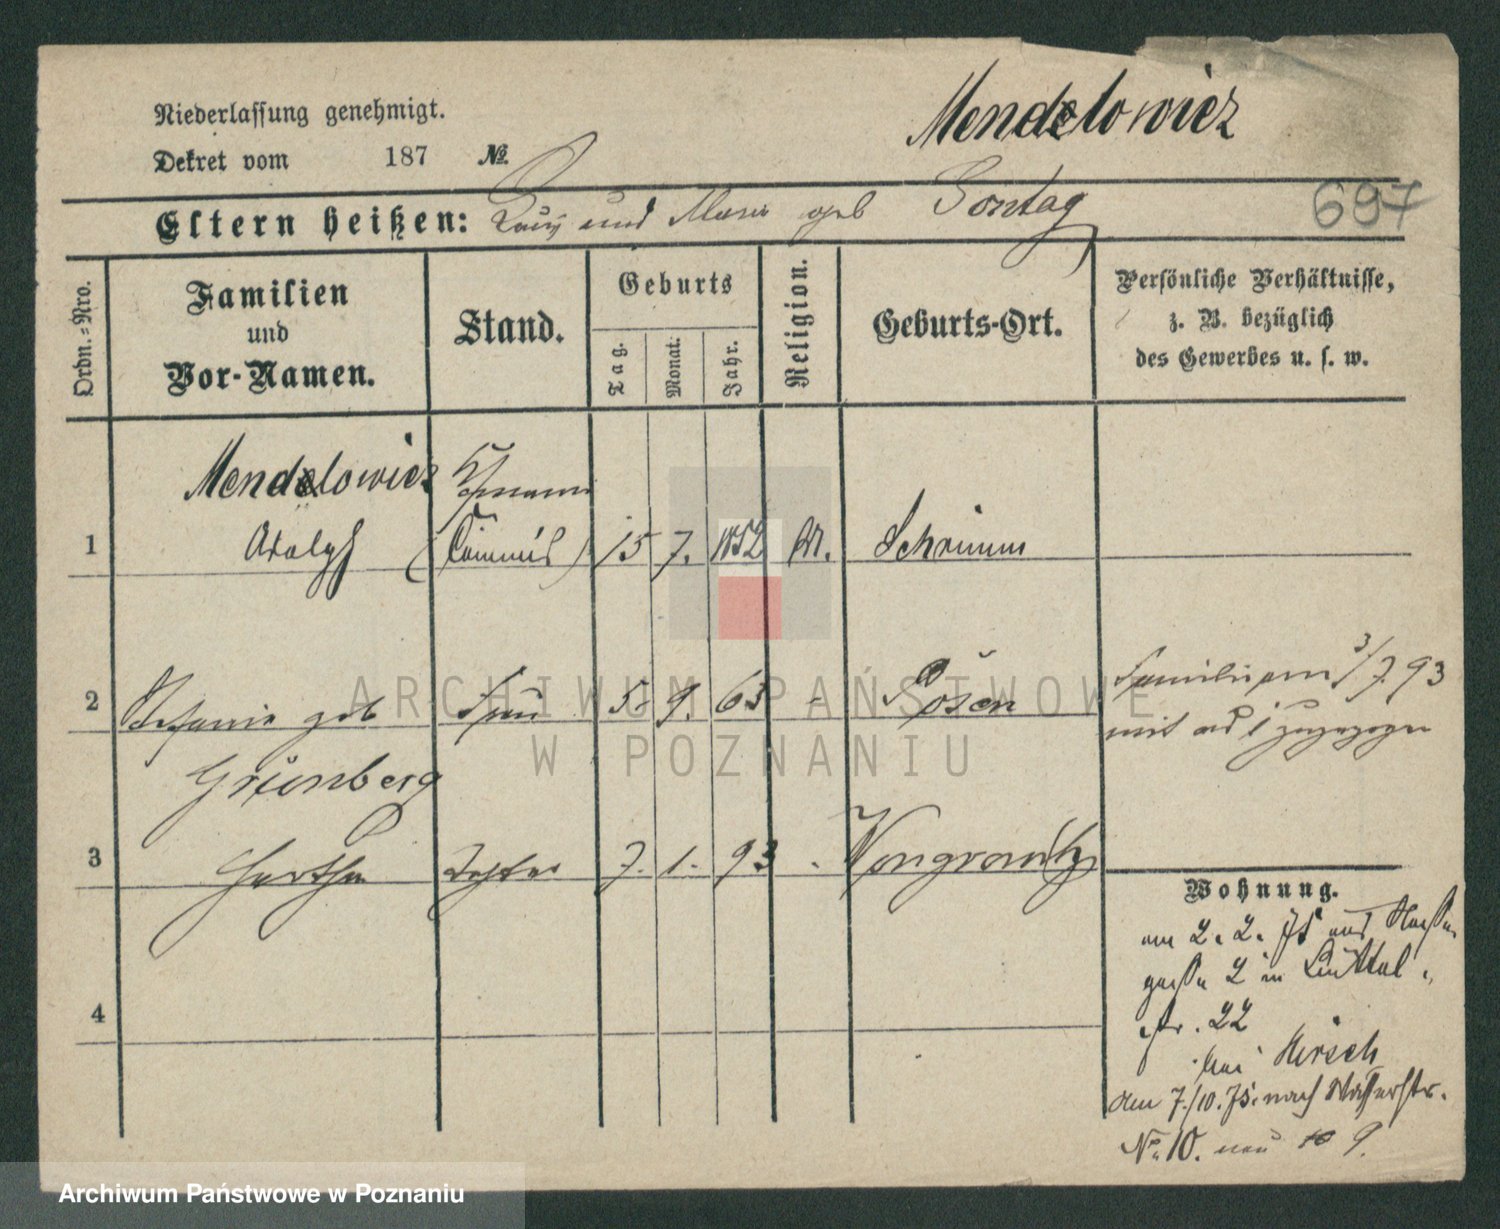 Niederlassung genehmigt.
Mendelowicz
Dekret vom 187 №.
697
Eltern heißen: Louis und Marie geb Sontag
Ordn.-Nro.
Familien
und
Vor-Namen.
Stand.
Geburts
Tag.
Monat.
Jahr.
Religion.
Geburts-Ort.
Persönliche Verhältnisse,
z. B. bezüglich
des Gewerbes u. s. w.
Mendelowicz Kfmann
1 Adolph (Commis) 15 7. 1852 M. Schrimm
2 Stefanie geb Frau 5. 9. 63 - Posen
Grünberg
Familie am 3/7 93
mit zugezogen
3 Hertha Tochter 7. 1. 93 - Wongrowitz
4
Wohnung.
am 2. 2. 75 aus
gasse 2 in
str. 22
bei Hirsch
Am 7./10. 75. nach Wasserstr.
No. 10. neu 9.
ARCHIWUM PAŃSTWOWE
W POZNANIU
Archiwum Państwowe w Poznaniu